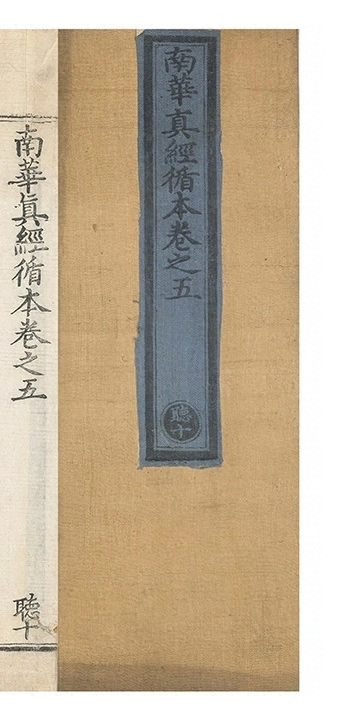 南華真經循本卷之五
聽十
南華眞經循本卷之五
聽十